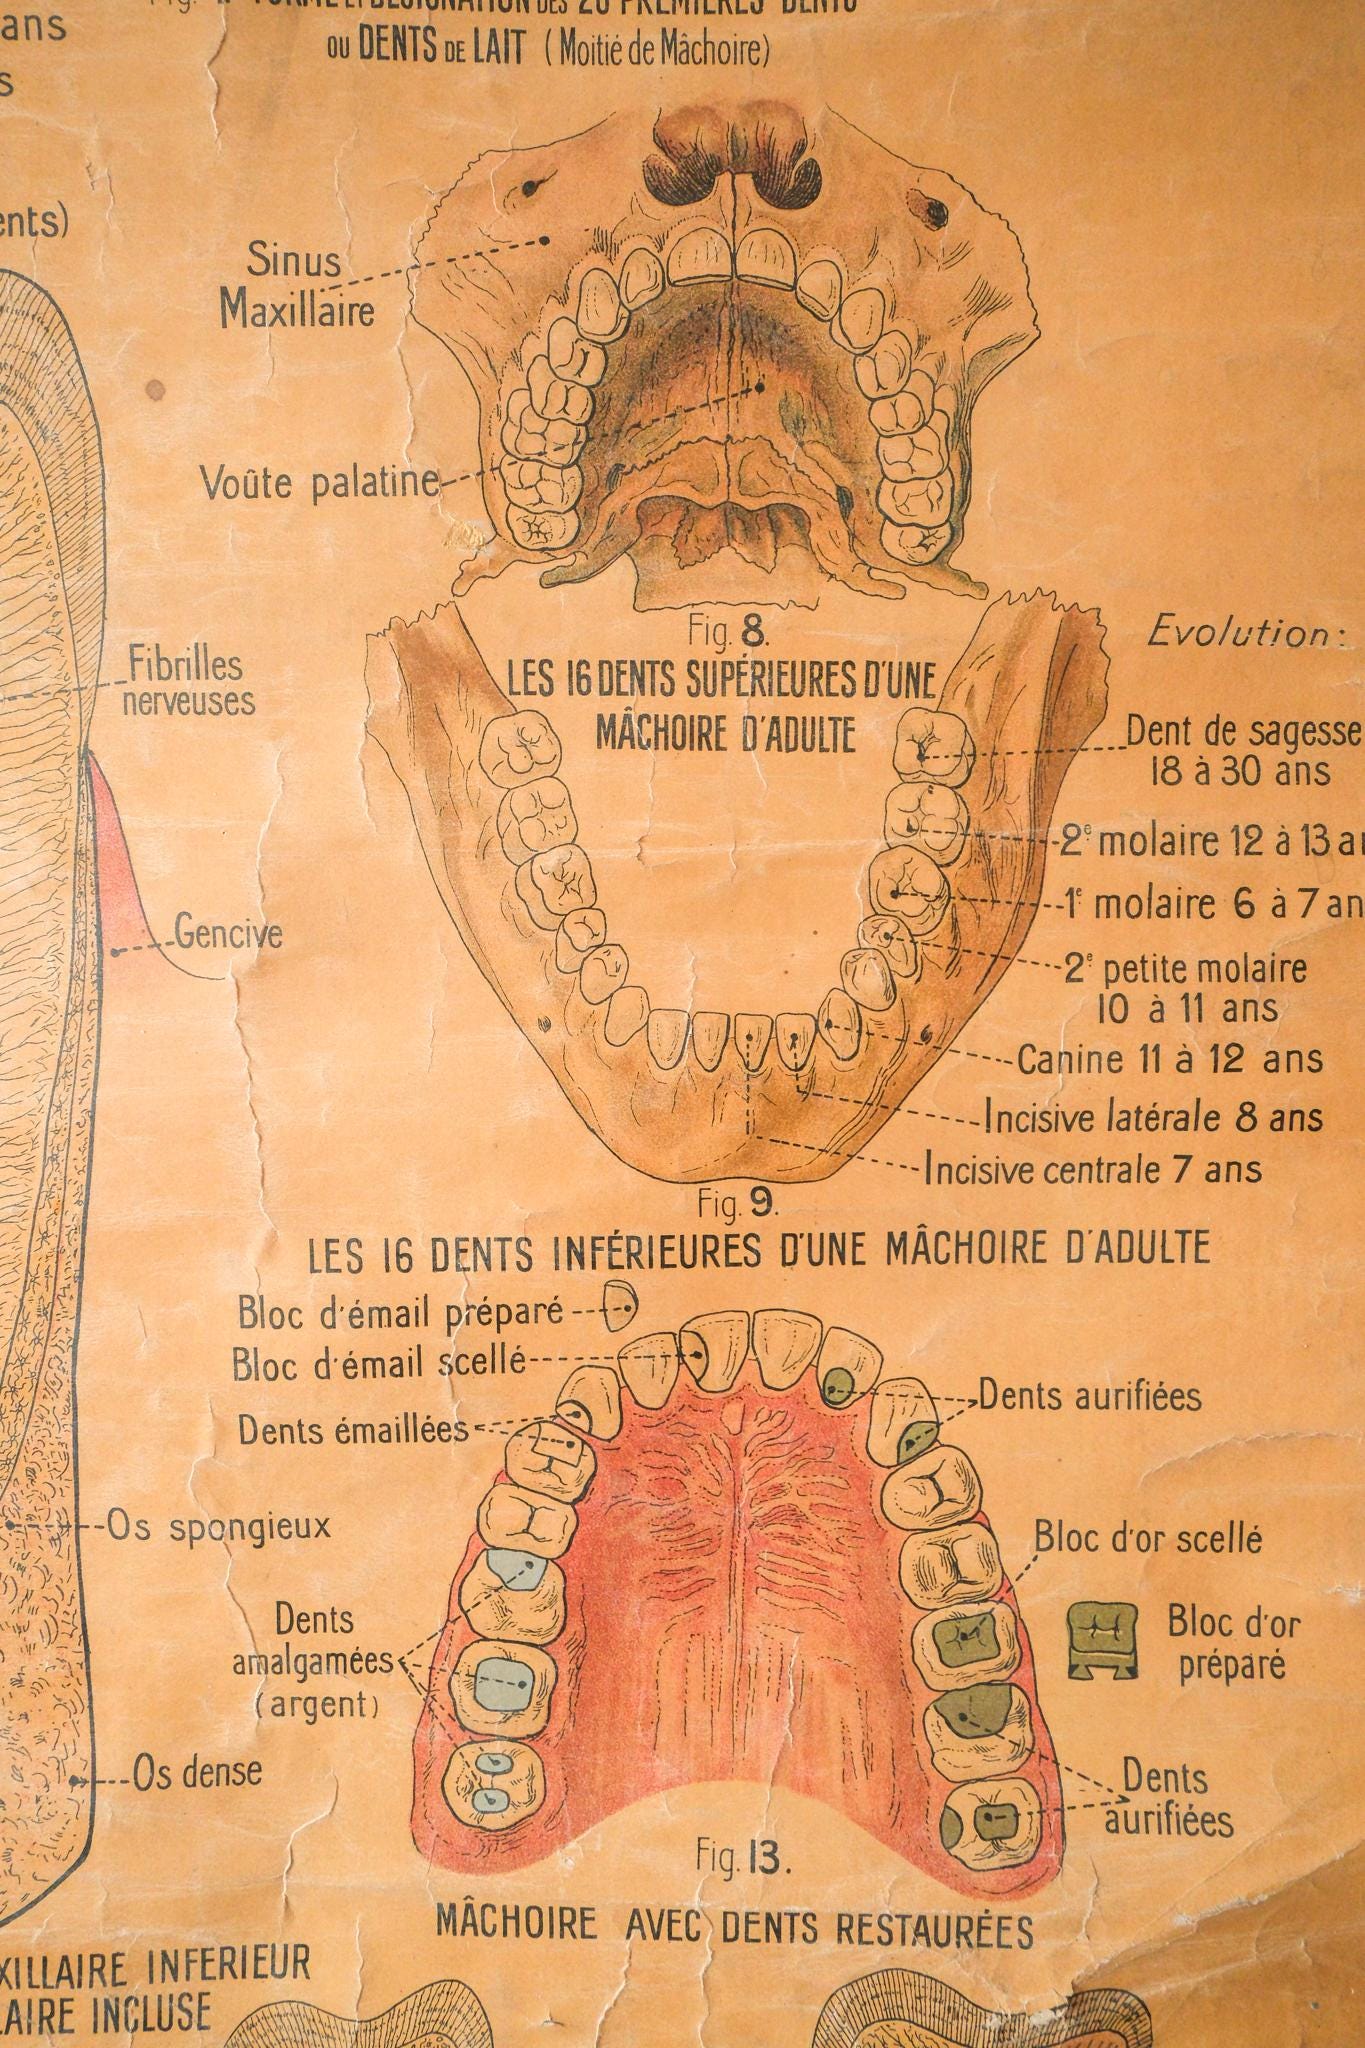 ans
FORME ET DÉSIGNATION DES 20 PREMIÈRES DENTS
OU DENTS DE LAIT (Moitié de Mâchoire)
s
ents)
Sinus
Maxillaire
Voûte palatine
Fig. 8.
LES 16 DENTS SUPÉRIEURES D'UNE
MÂCHOIRE D'ADULTE
Evolution:
Fibrilles
nerveuses
Dent de sagesse
18 à 30 ans
2e molaire 12 à 13 an
1e molaire 6 à 7 an
Gencive
2e petite molaire
10 à 11 ans
Canine 11 à 12 ans
Incisive latérale 8 ans
Incisive centrale 7 ans
Fig. 9.
LES 16 DENTS INFÉRIEURES D'UNE MÂCHOIRE D'ADULTE
Bloc d'émail préparé
Bloc d'émail scellé
Dents aurifiées
Dents émaillées
Os spongieux
Bloc d'or scellé
Dents
amalgamées
(argent)
Bloc d'or
préparé
Os dense
Dents
aurifiées
Fig. 13.
MÂCHOIRE AVEC DENTS RESTAURÉES
XILLAIRE INFERIEUR
LAIRE INCLUSE